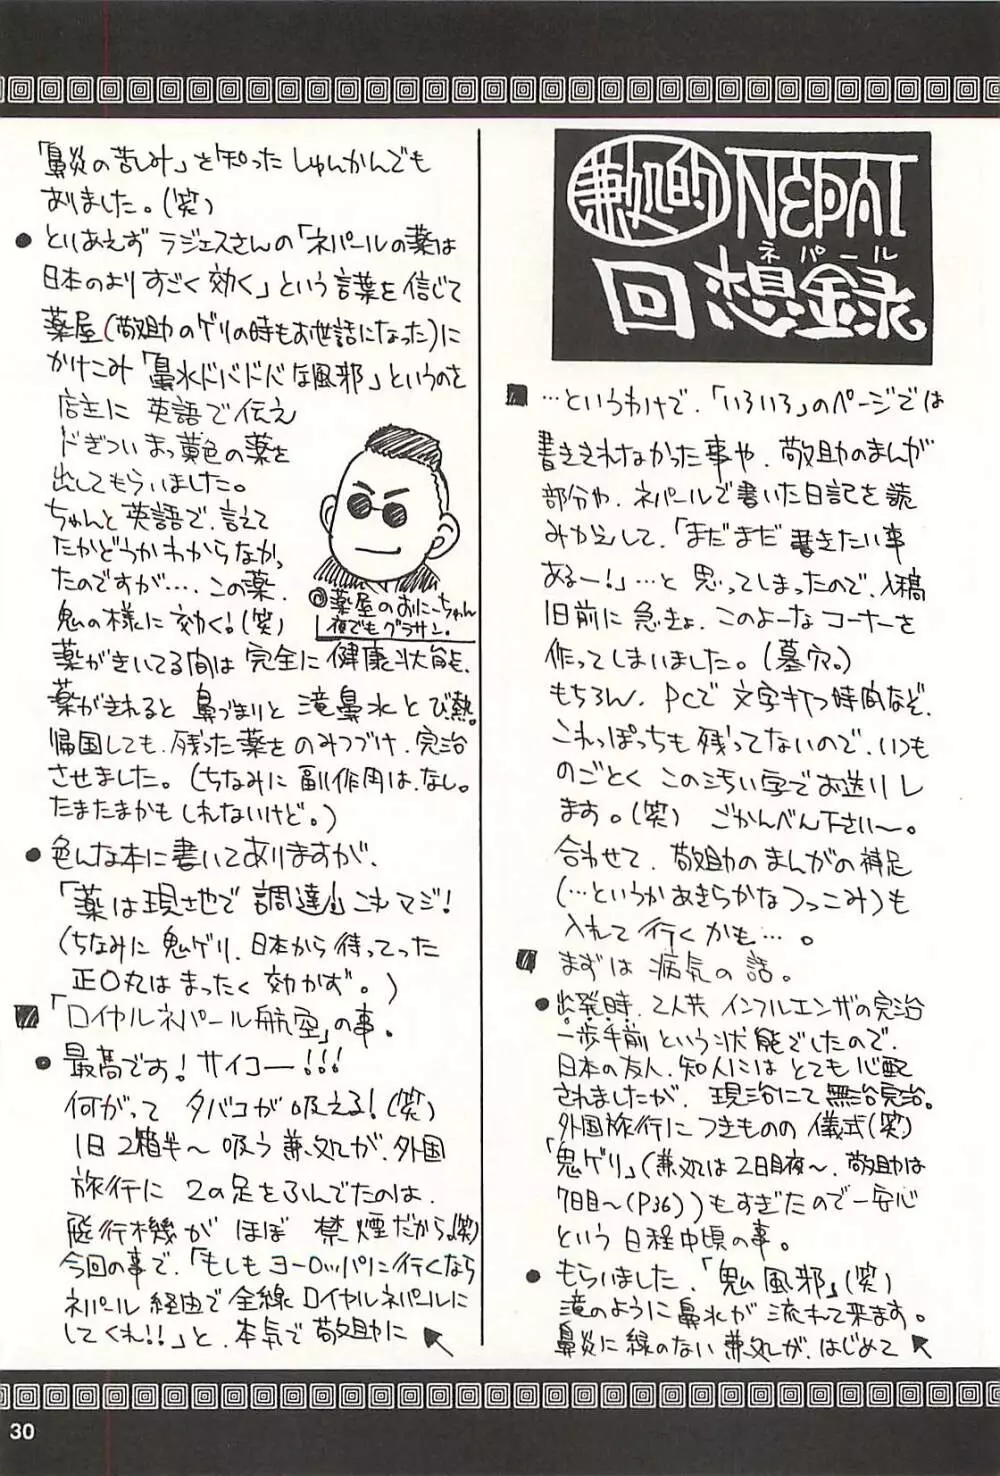 兼処的NEPAL
ネパール
回想録
■ …というわけで、「いろいろ」のページでは
書ききれなかった事や、敬助のまんが
部分や、ネパールで書いた日記を読
みかえして、「まだまだ書きたい事
あるー!」…と思ってしまったので、入稿
1日前に急きょ、このよーなコーナーを
作ってしまいました。(墓穴。)
もちろん、PCで文字打つ時間など、
これっぽっちも残ってないので、いつも
のごとくこの汚い字でお送りし
ます。(笑) ごかんべん下さい〜。
合わせて、敬助のまんがの補足
(…というかあきらかなつっこみ)も
入れて行くかも…。
■ まずは病気の話。
● 出発時、2人共インフルエンザの完治
一歩手前という状態でしたので、
日本の友人、知人にはとても心配
されましたが、現治にて無治完治。
外国旅行につきものの儀式(笑)
「鬼ゲリ」(兼処は2日目夜〜、敬助は
7日目〜(P36))もすぎたので一安心
という日程中頃の事。
● もらいました、「鬼風邪」(笑)
滝のように鼻水が流れて来ます。
鼻炎に縁のない兼処が、はじめて
「鼻炎の苦しみ」を知ったしゅんかんでも
ありました。(笑)
● とりあえずラジェスさんの「ネパールの薬は
日本のよりすごく効く」という言葉を信じて
薬屋(敬助のゲリの時もお世話になった)に
かけこみ「鼻水ドバドバな風邪」というのを
店主に英語で伝え
ドぎついまっ黄色の薬を
出してもらいました。
ちゃんと英語で、言えて
たかどうかわからなかっ
たのですが…、この薬、
鬼の様に効く!(笑)
◎薬屋のおにーちゃん
夜でもグラサン。
薬がきいてる間は完全に健康状態、
薬がきれると鼻づまりと滝鼻水とび熱。
帰国しても、残った薬をのみつづけ、完治
させました。(ちなみに副作用は、なし。
たまたまかもしれないけど。)
● 色んな本に書いてありますが、
「薬は現地で調達」これマジ!
(ちなみに鬼ゲリ、日本から待ってった
正〇丸はまったく効かず。)
■ 「ロイヤルネパール航空」の事。
● 最高です!サイコー!!!
何がってタバコが吸える!(笑)
1日2箱半〜吸う兼処が、外国
旅行に2の足をふんでたのは、
飛行機がほぼ禁煙だから。(笑)
今回の事で、「もしもヨーロッパに行くなら
ネパール経由で全線ロイヤルネパールに
してくれ!!」と、本気で敬助に
30